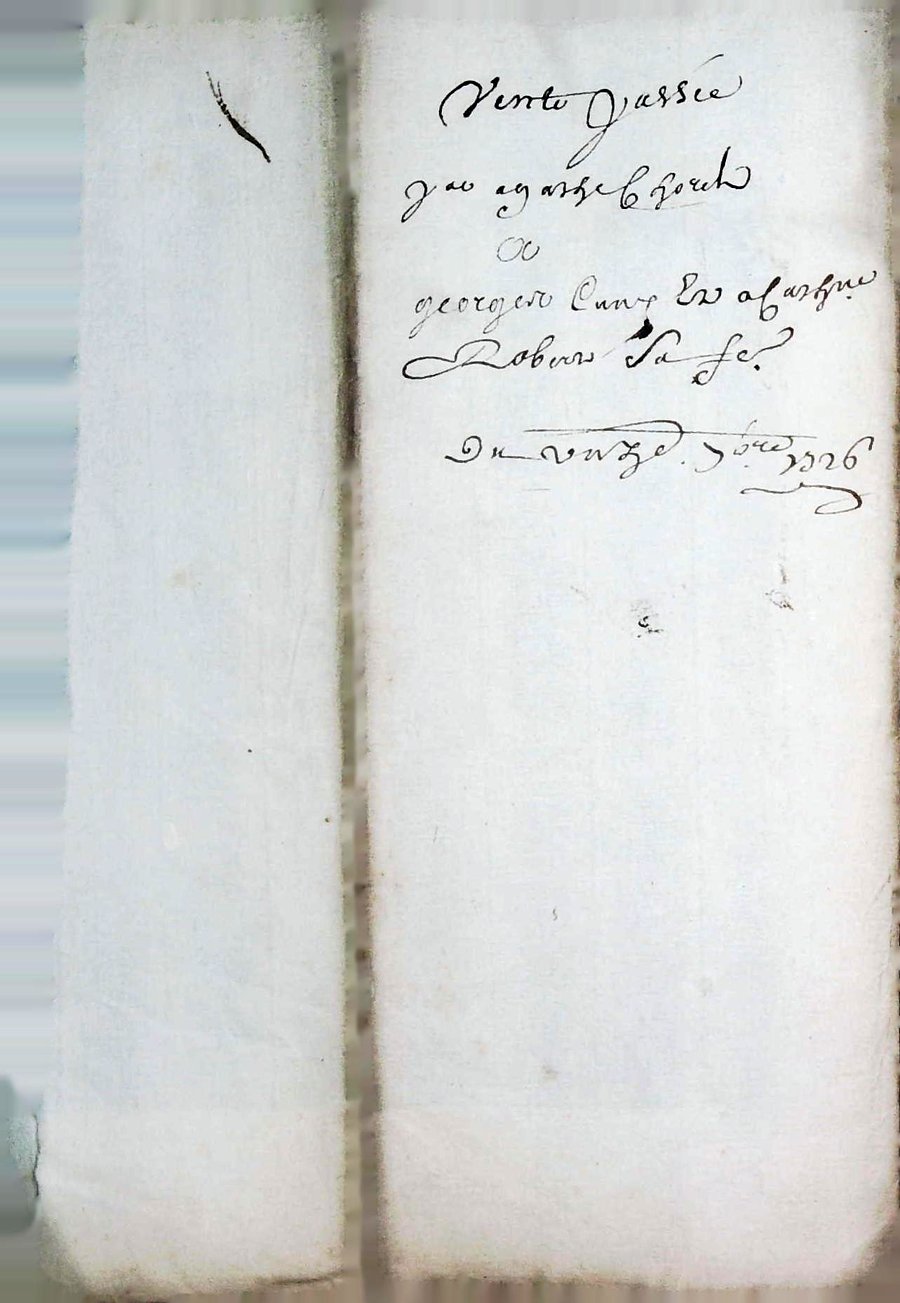 Vente passée
par agathe Chouet
a
georges Cuny Et a Cathne
Robert Sa fe.
Du onze. 7bre 1726